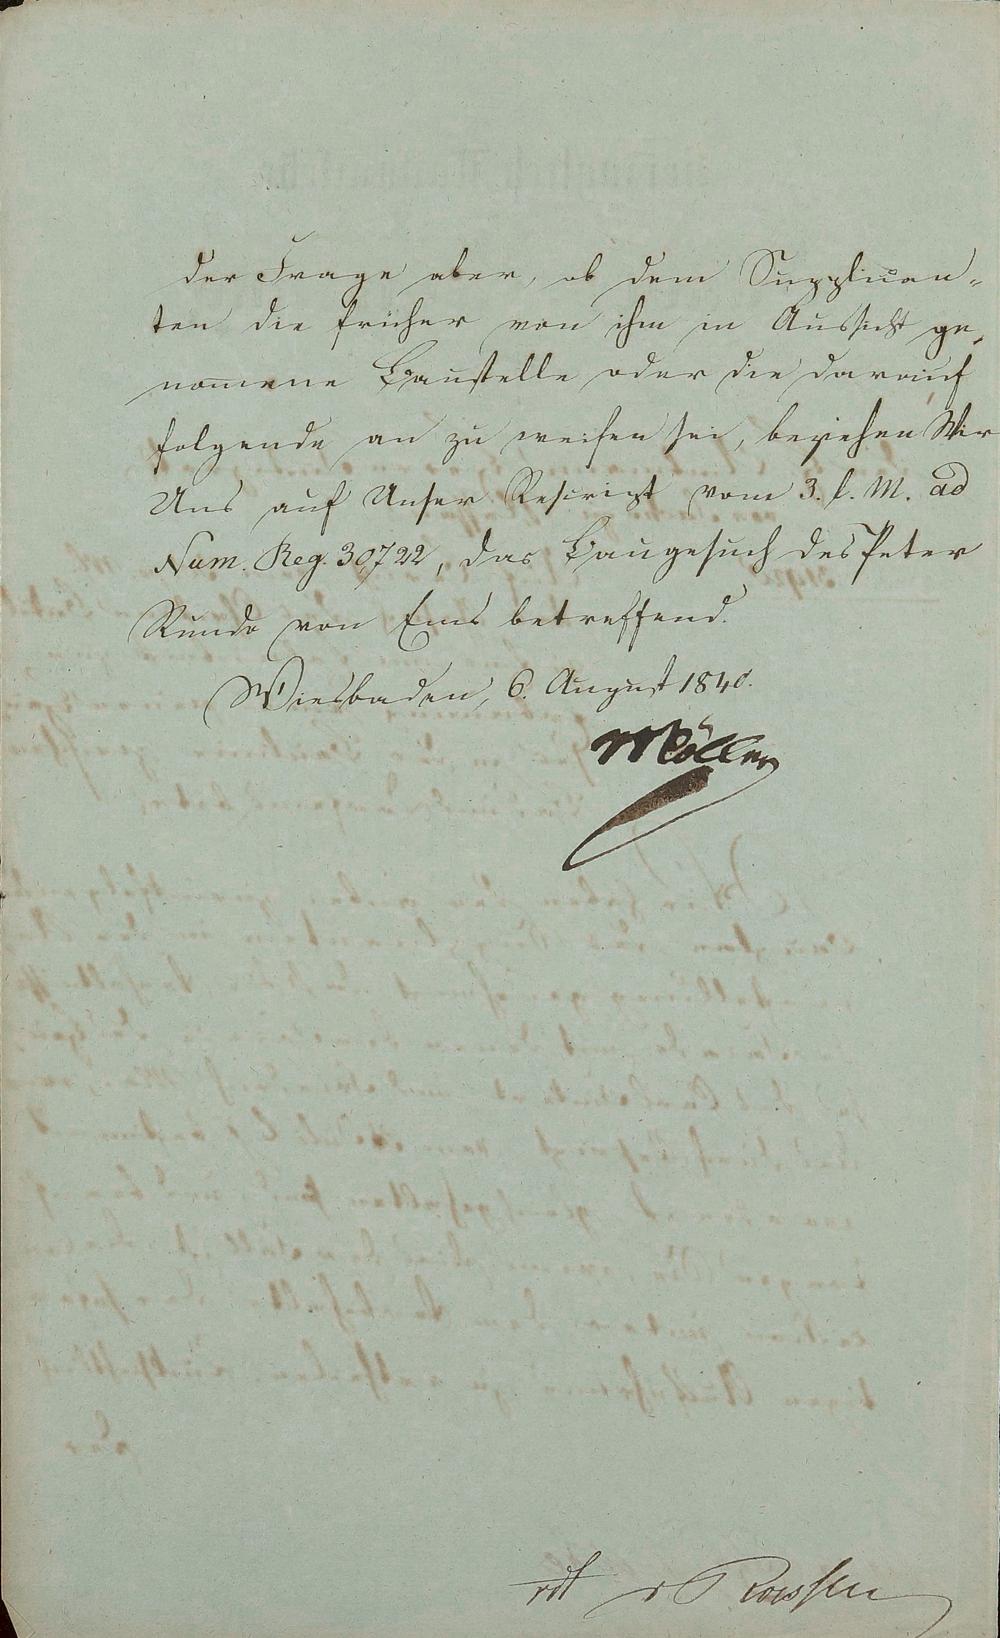 der Frage aber, ob dem Supplican-
ten die früher von ihm in Aussicht ge-
nomene Baustelle oder die darauf
folgende an zu weisen sei, beziehen Wir
Uns auf Unser Rescript vom 3. l. M. ad
Num. Reg. 30722, das Baugesuch des Peter
von Ems betreffend.
Wiesbaden, 6. August 1840.
Möller
vdt